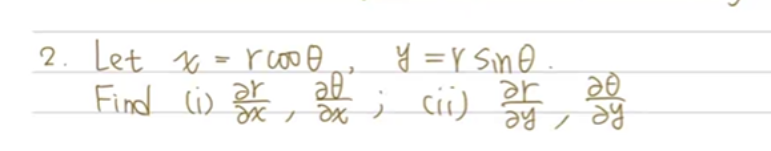 2. Let x = r cos θ, y = r sin θ.
Find (i) ∂r/∂x, ∂θ/∂x ; (ii) ∂r/∂y, ∂θ/∂y